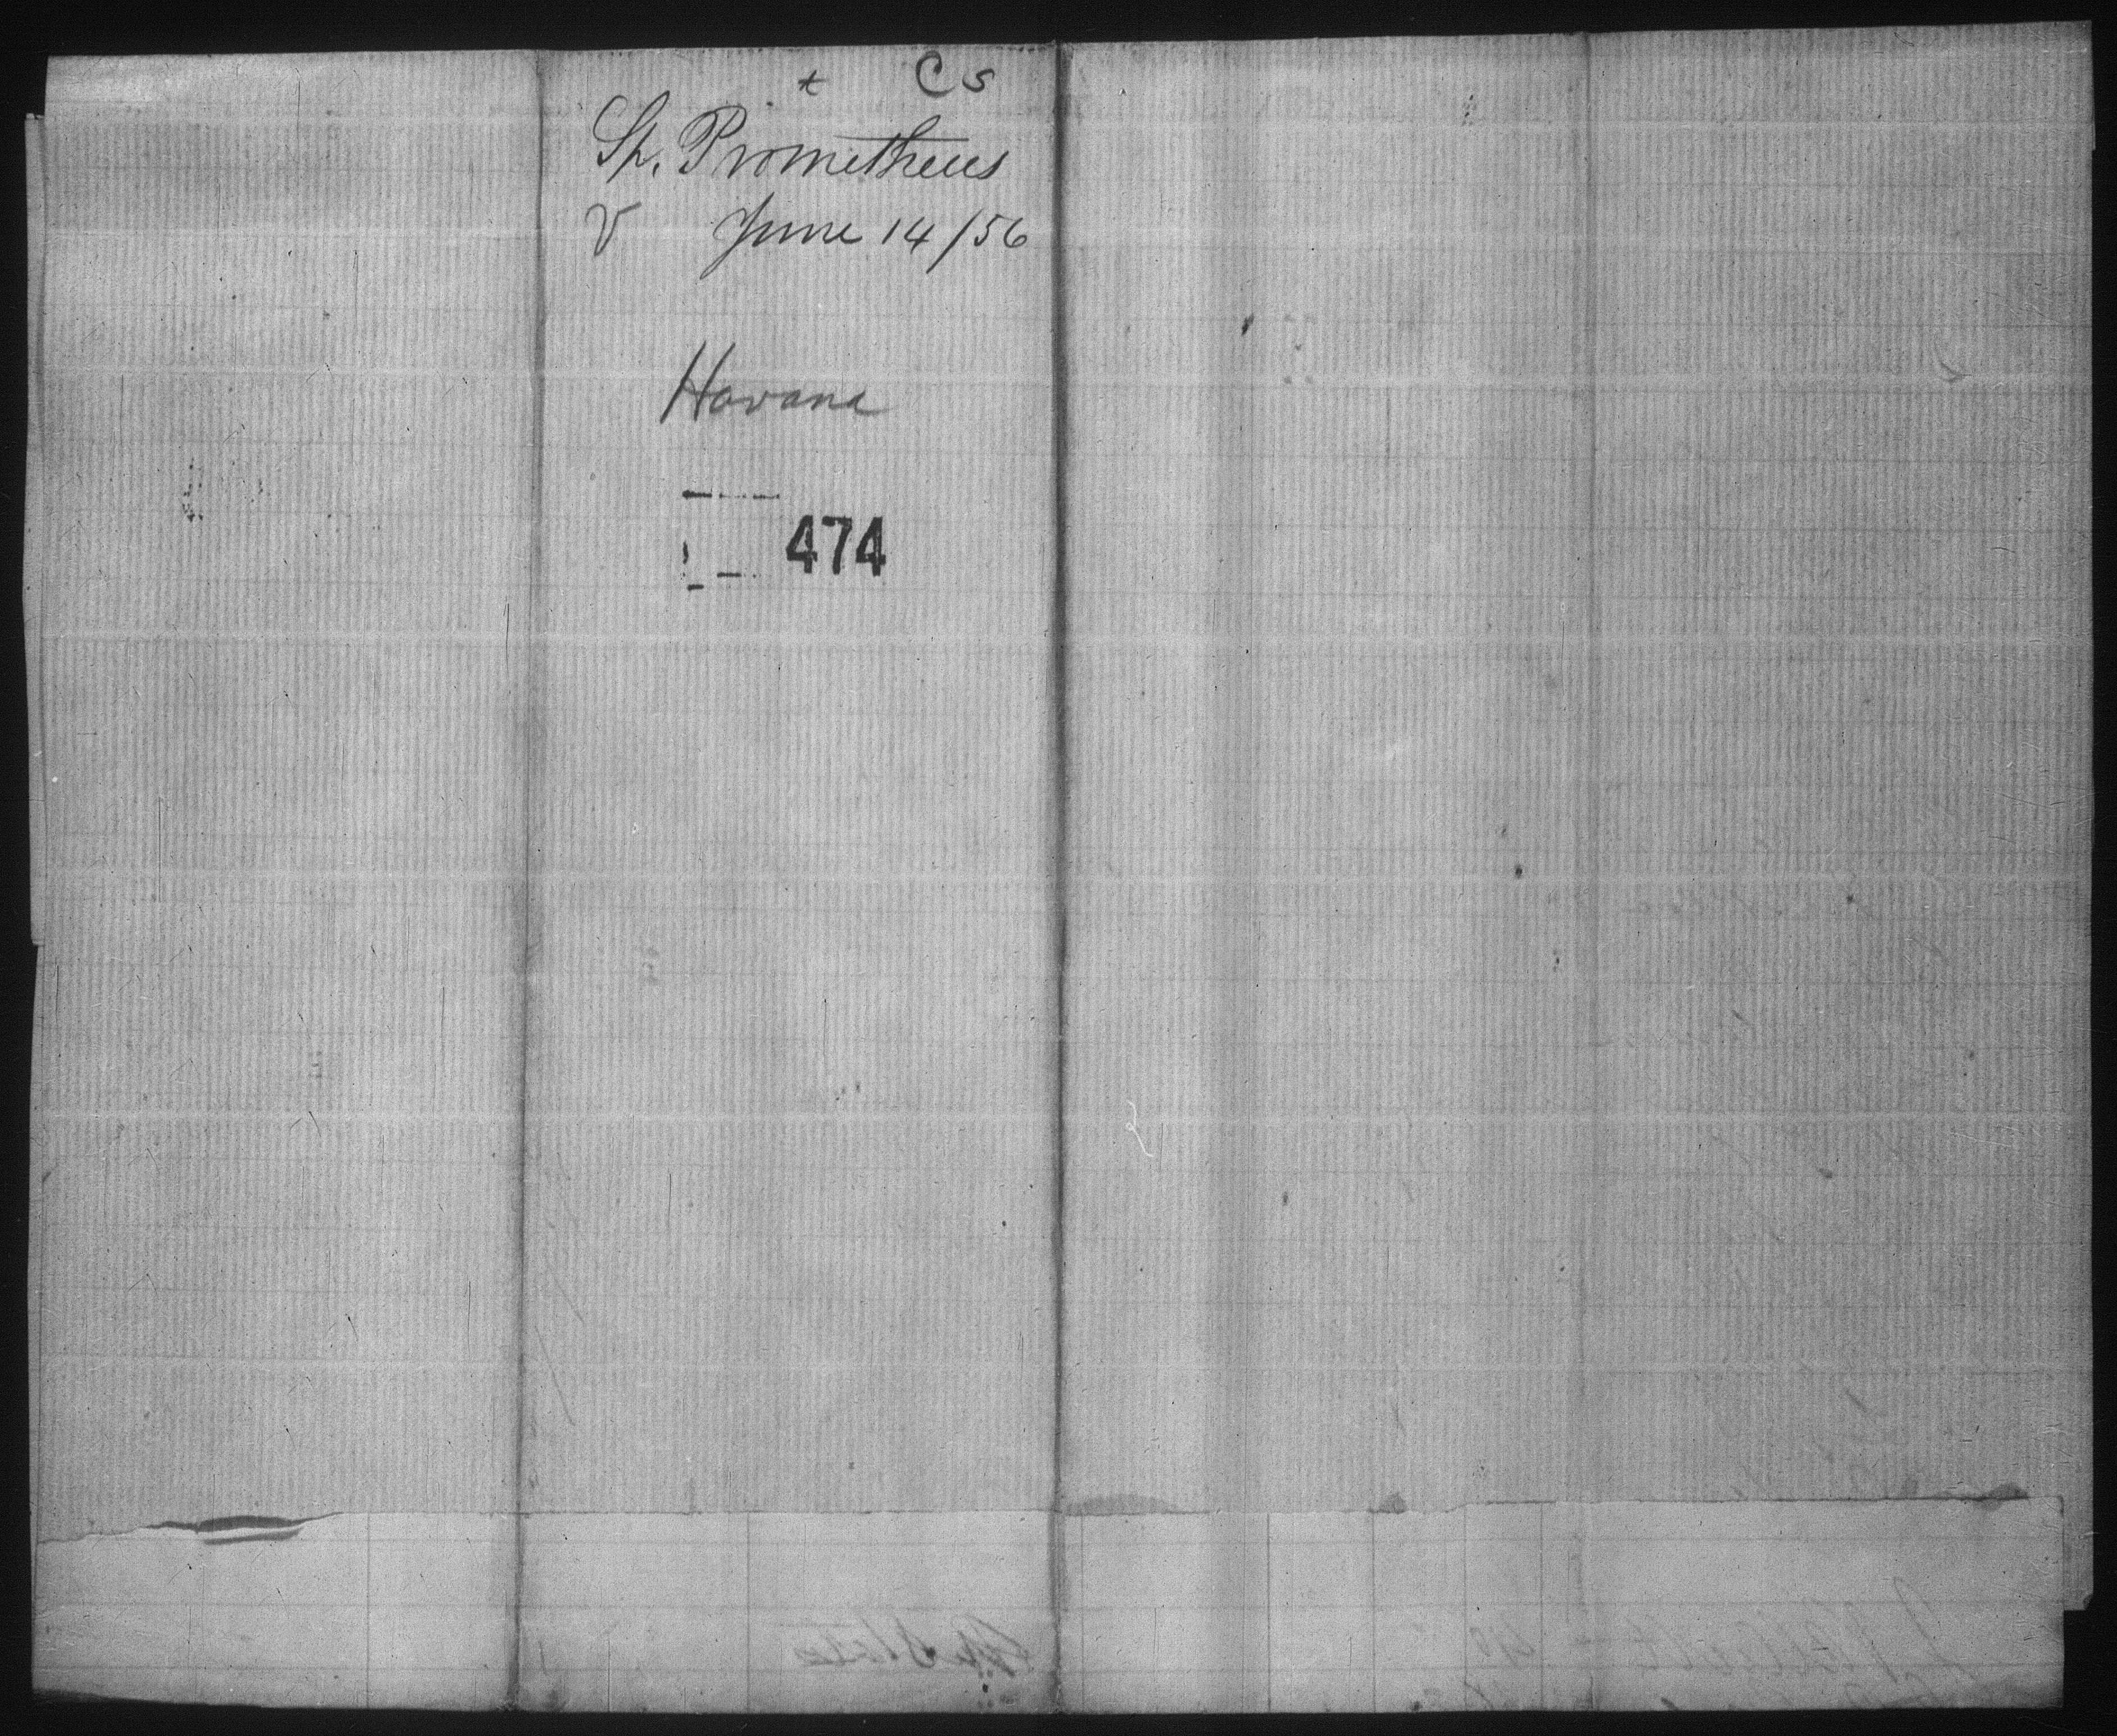 + C S
Sh. Prometheus
V June 14/56
Havana
474